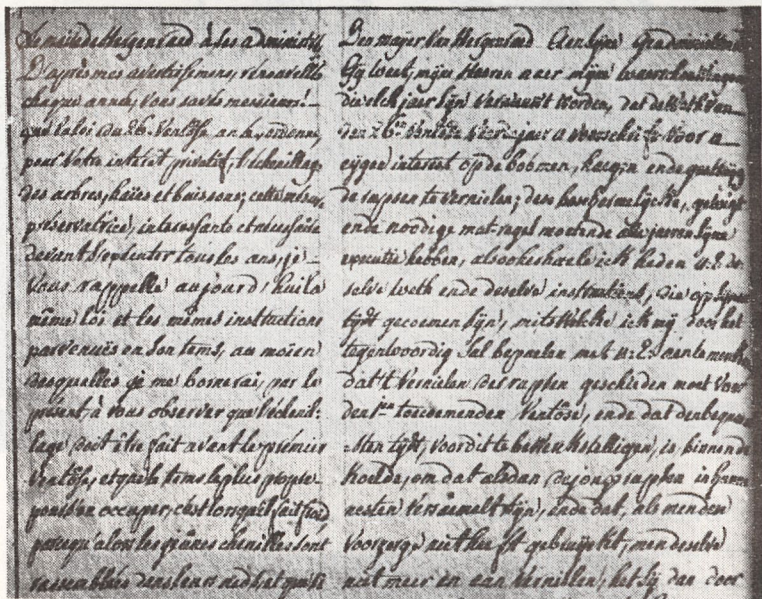 Le maire de Hergenraed à ses administrés
D'après mes avertissemens, renouvellés
chaque année, vous savés messieurs! –
que la loi du 26 Ventôse an 4, ordonne,
pour Votre intérêt privatif, l'échenillage
des arbres, haïes et buissons; cette mesure
préservatrice, intéressante et nécessaire
devant s'exécuter tous les ans, je –
Vous rappelle aujourd'hui la
même loi et les mêmes instructions
parvenuës en son tems, au moïen
desquelles je me bornerai, par le
présent à vous observer que l'échenil:
lage doit être fait avant le premier
Ventôse, et que le tems le plus propre
pour s'en occuper, c'est lorsqu'il fait froid
parcequ'alors les jeunes chenilles sont
rassemblées dans leurs nids, et que si
Den majer Van Hergenraed Aen sijne Geadministreerde
Gij weet, mijne Heeren naer mijne waerschouwingen
die elck jaer sijn vernieuwt worden, dat de Weth van
den 26en Ventôse vierde jaer a voorschrijft voor u
eygen interest op de boomen, haegen ende
de rupsen te vernielen; dese
ende noodige maetregel moetende alle jaeren sijne
executie hebben, alsoo herhaele ick heden u.E. de
selve weth ende deselve instructiens, die op sijnen
tijdt gecoemen sijn, mits welcke ick mij door het
tegenwoordig sal bepaelen met u.E. aen te mercken
dat 't vernielen der rupsen geschieden moet voor
den 1en toecomenden Ventôse, ende dat den bequaem
-sten tijdt, voor dit te bewerkstelligen, is binnen de
koude, om dat alsdan de jonge rupsen in haere
nesten versaemelt sijn, ende dat, als men den
voorzorge niet heeft gebruyckt, men deselve
niet meer en can vernielen, het sij dan door